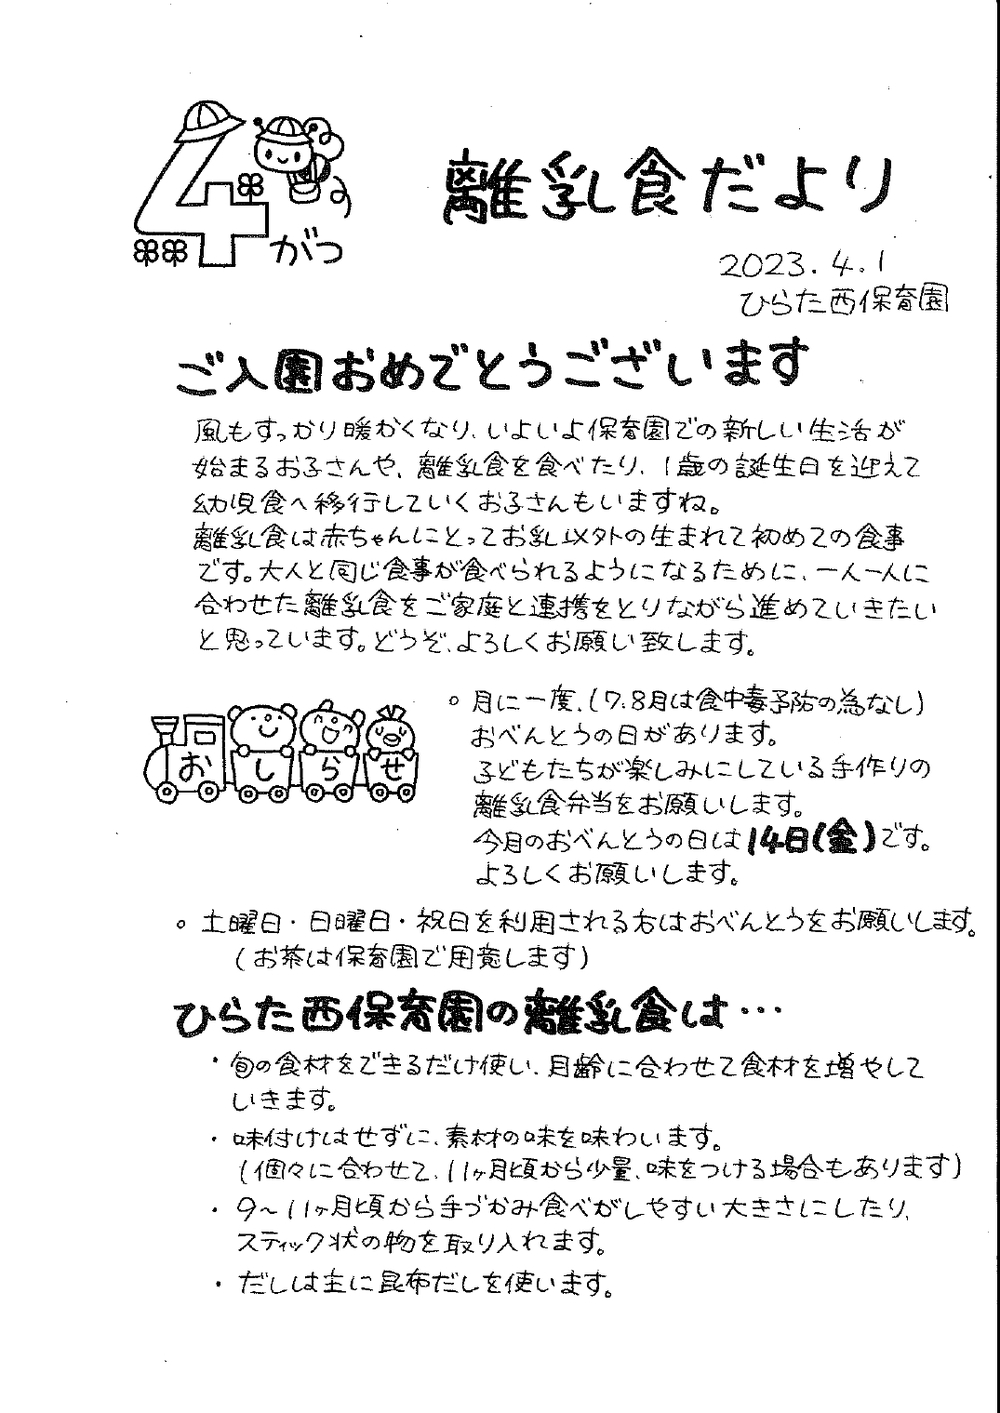 4がつ
離乳食だより
2023.4.1
ひらた西保育園
ご入園おめでとうございます
風もすっかり暖かくなり、いよいよ保育園での新しい生活が
始まるお子さんや、離乳食を食べたり、1歳の誕生日を迎えて
幼児食へ移行していくお子さんもいますね。
離乳食は赤ちゃんにとってお乳以外の生まれて初めての食事
です。大人と同じ食事が食べられるようになるために、一人一人に
合わせた離乳食をご家庭と連携をとりながら進めていきたい
と思っています。どうぞ、よろしくお願い致します。
おしらせ
○ 月に一度、(7、8月は食中毒予防の為なし)
おべんとうの日があります。
子どもたちが楽しみにしている手作りの
離乳食弁当をお願いします。
今月のおべんとうの日は14日(金)です。
よろしくお願いします。
○ 土曜日・日曜日・祝日を利用される方はおべんとうをお願いします。
(お茶は保育園で用意します)
ひらた西保育園の離乳食は…
・旬の食材をできるだけ使い、月齢に合わせて食材を増やして
いきます。
・味付けはせずに、素材の味を味わいます。
(個々に合わせて、11ヶ月頃から少量、味をつける場合もあります)
・9～11ヶ月頃から手づかみ食べがしやすい大きさにしたり、
スティック状の物を取り入れます。
・だしは主に昆布だしを使います。